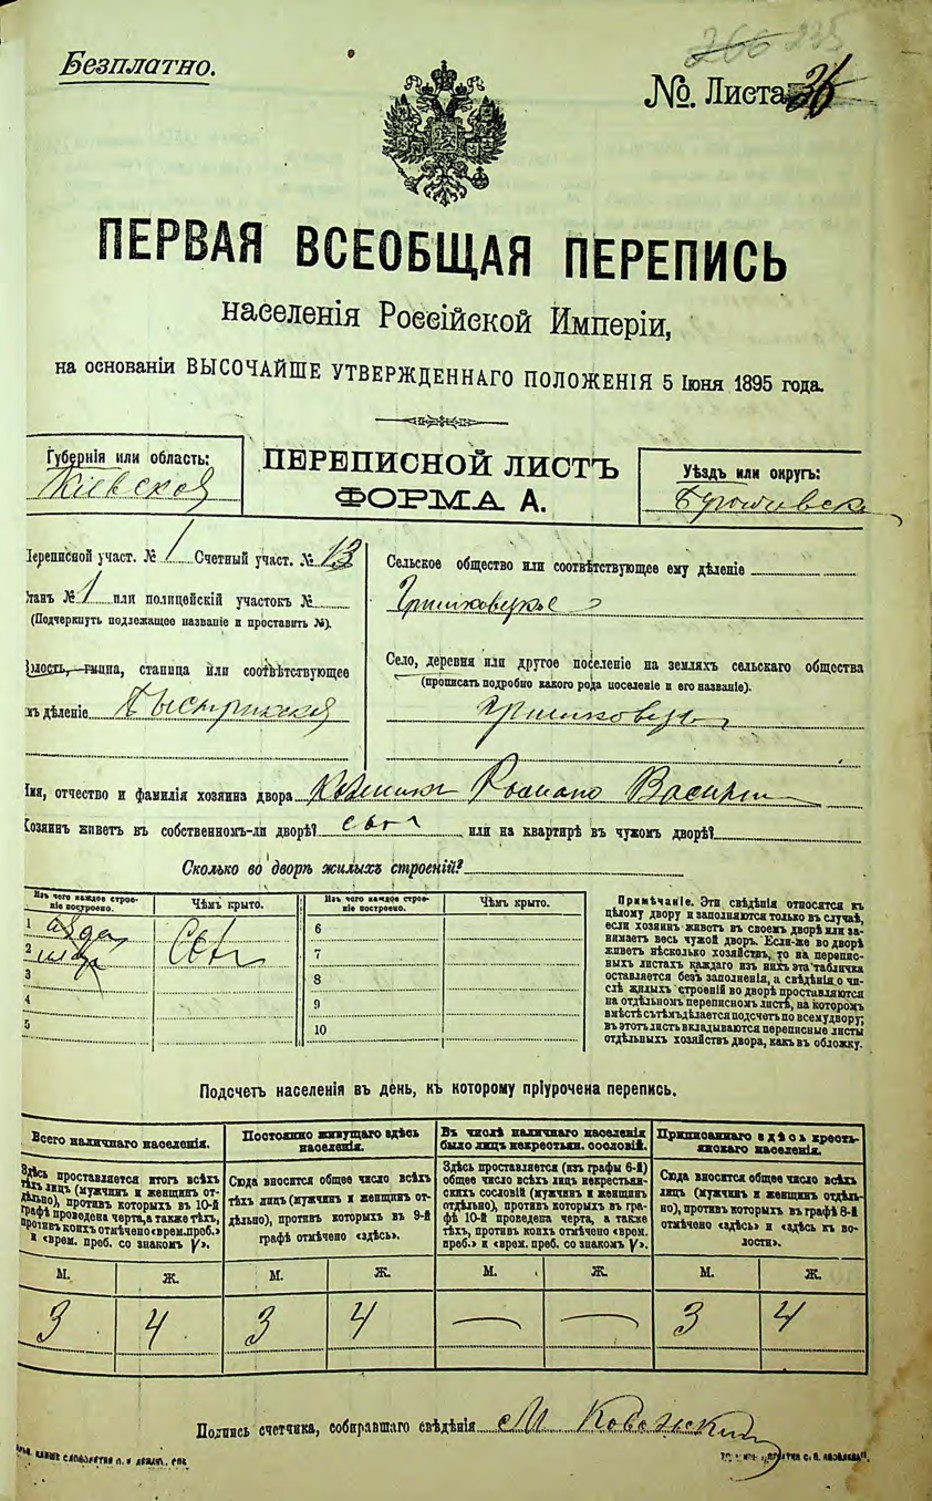 Безплатно.
№. Листа 36
ПЕРВАЯ ВСЕОБЩАЯ ПЕРЕПИСЬ
населенія Россійской Имперіи,
на основаніи ВЫСОЧАЙШЕ УТВЕРЖДЕННАГО ПОЛОЖЕНІЯ 5 Іюня 1895 года.
Губернія или область:
Кіевской
ПЕРЕПИСНОЙ ЛИСТЪ
ФОРМА А.
Уѣздъ или округъ:
Переписной участ. № 1 Счетный участ. № 13
Станъ № 1 или полицейскій участокъ №
(Подчеркнуть подлежащее названіе и проставить №).
Волость, гмина, станица или соотвѣтствующее
имъ дѣленіе
Сельское общество или соотвѣтствующее ему дѣленіе
Гришковецкое
Село, деревня или другое поселеніе на земляхъ сельскаго общества
(прописать подробно какого рода поселеніе и его названіе).
Гришковецы
Имя, отчество и фамилія хозяина двора Романа
Хозяинъ живетъ въ собственномъ-ли дворѣ? или на квартирѣ въ чужомъ дворѣ?
Сколько во дворѣ жилыхъ строеній?
Изъ чего каждое строеніе построено. Чѣмъ крыто. Изъ чего каждое строеніе построено. Чѣмъ крыто.
1 6
2 7
3 8
4 9
5 10
Примѣчаніе. Эти свѣдѣнія относятся къ
цѣлому двору и заполняются только въ случаѣ,
если хозяинъ живетъ въ своемъ дворѣ или за-
нимаетъ весь чужой дворъ. Если-же во дворѣ
живетъ нѣсколько хозяйствъ, то на перепис-
ныхъ листахъ каждаго изъ нихъ эта табличка
оставляется безъ заполненія, а свѣдѣнія о чи-
слѣ жилыхъ строеній во дворѣ проставляются
на отдѣльномъ переписномъ листѣ, на которомъ
вмѣстѣ съ тѣмъ дѣлается подсчетъ по всему двору;
въ этотъ листъ вкладываются переписные листы
отдѣльныхъ хозяйствъ двора, какъ въ обложку.
Подсчетъ населенія въ день, къ которому пріурочена перепись.
Всего наличнаго населенія.
Здѣсь проставляется итогъ всѣхъ
тѣхъ лицъ (мужчинъ и женщинъ от-
дѣльно), противъ которыхъ въ 10-й
графѣ проведена черта, а также тѣхъ,
противъ коихъ отмѣчено «врем. преб.»
и «врем. преб. со знакомъ V».
Постоянно живущаго здѣсь
населенія.
Сюда вносится общее число всѣхъ
тѣхъ лицъ (мужчинъ и женщинъ от-
дѣльно), противъ которыхъ въ 9-й
графѣ отмѣчено «здѣсь».
Въ числѣ наличнаго населенія
было лицъ некрестьян. сословій.
Здѣсь проставляется (изъ графы 6-й)
общее число всѣхъ лицъ некрестьян-
скихъ сословій (мужчинъ и женщинъ
отдѣльно), противъ которыхъ въ гра-
фѣ 10-й проведена черта, а также
тѣхъ, противъ коихъ отмѣчено «врем.
преб.» и «врем. преб. со знакомъ V».
Приписаннаго здѣсь кресть-
янскаго населенія.
Сюда вносится общее число всѣхъ
лицъ (мужчинъ и женщинъ отдѣль-
но), противъ которыхъ въ графѣ 8-й
отмѣчено «здѣсь» и «здѣсь къ во-
лости».
М. Ж. М. Ж. М. Ж. М. Ж.
3 4 3 4 — — 3 4
Подпись счетчика, собиравшаго свѣдѣнія М.